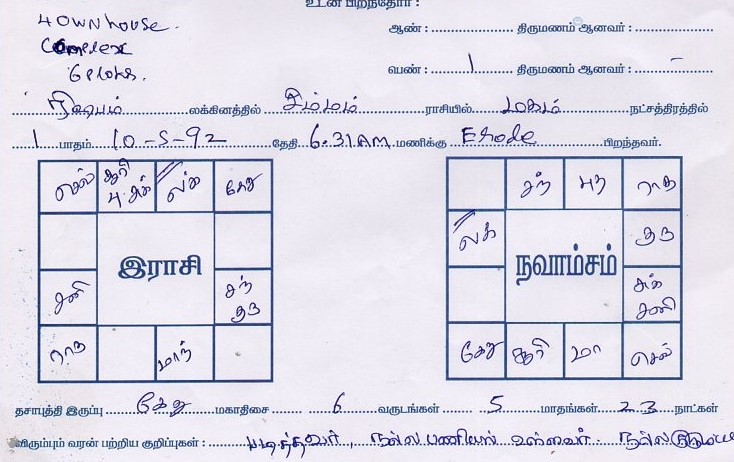 உடன் பிறந்தோர் :
4 OWN house.
ஆண் : திருமணம் ஆனவர் :
Complex
பெண் : 1 திருமணம் ஆனவர் : -
ரிஷபம் லக்கினத்தில் சிம்மம் ராசியில் மகம் நட்சத்திரத்தில்
1 பாதம் 10-5-92 தேதி 6.31 AM மணிக்கு Erode பிறந்தவர்.
செவ் சூரி புத சுக் லக் கேது
சந் புத ராகு
லக் குரு
இராசி
நவாம்சம்
சனி சந் குரு
சுக் சனி
ராகு மாந்
கேது சூரி மா செவ்
தசாபுத்தி இருப்பு கேது மகாதிசை 6 வருடங்கள் 5 மாதங்கள் 23 நாட்கள்
விரும்பும் வரன் பற்றிய குறிப்புகள் : படித்தவர், நல்ல பணியில் உள்ளவர். நல்ல